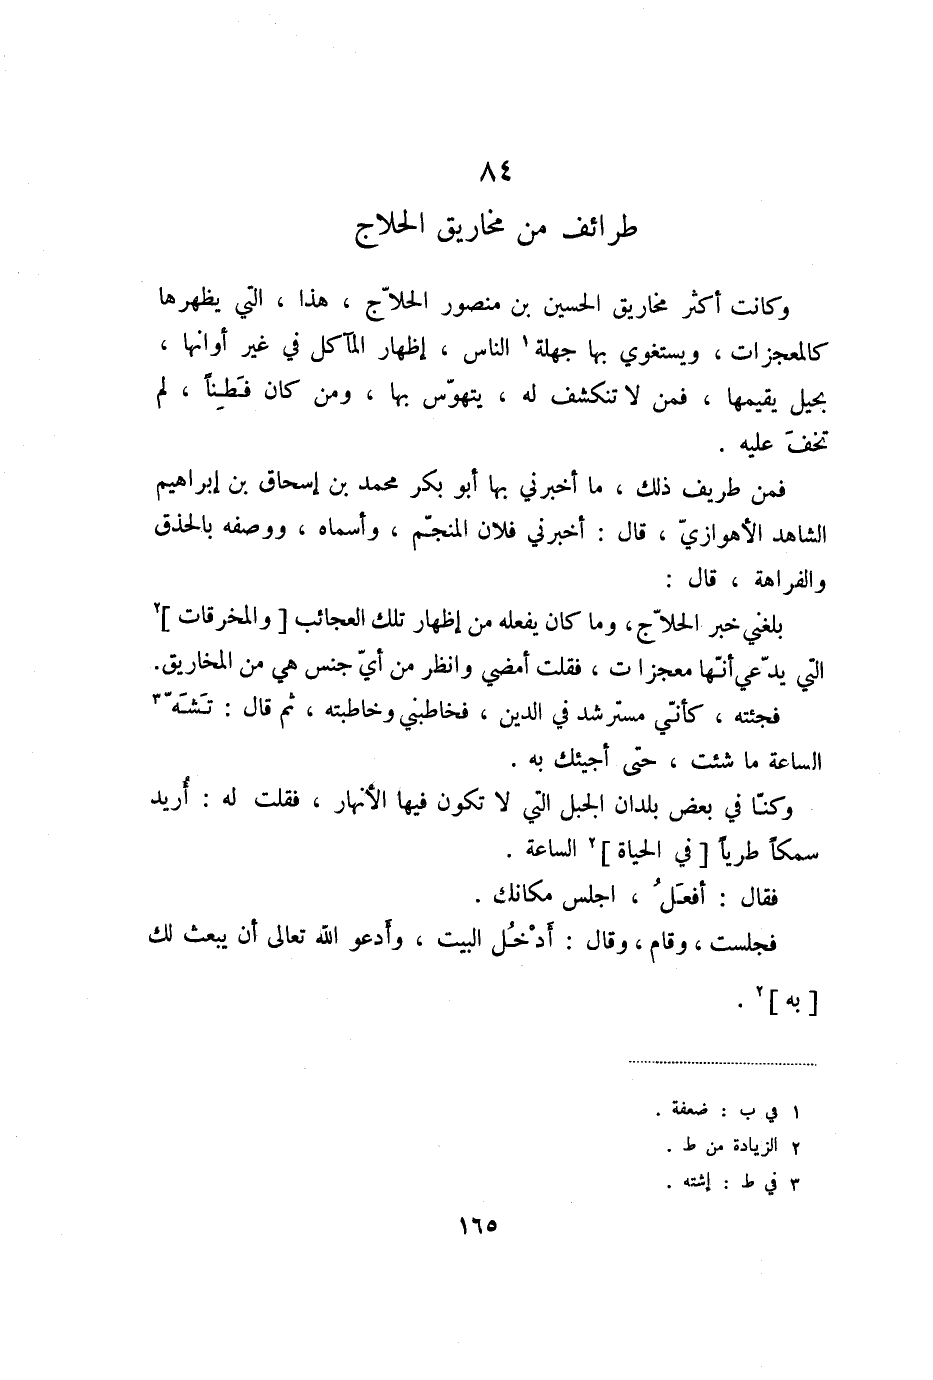 ٨٤
طرائف من مخاريق الحلاج
وكانت أكثر مخاريق الحسين بن منصور الحلاّج ، هذا ، التي يظهرها
كالمعجزات ، ويستغوي بها جهلة ١ الناس ، إظهار المآكل في غير أوانها ،
بحيل يقيمها ، فمن لا تنكشف له ، يتهوّس بها ، ومن كان فَطِناً ، لم
تخفَ عليه .
فمن طريف ذلك ، ما أخبرني بها أبو بكر محمد بن إسحاق بن إبراهيم
الشاهد الأهوازيّ ، قال : أخبرني فلان المنجّم ، وأسماه ، ووصفه بالحذق
والفراهة ، قال :
بلغني خبر الحلاّج، وما كان يفعله من إظهار تلك العجائب [ والمخرقات ]٢
التي يدّعي أنّها معجزات ، فقلت أمضي وانظر من أيّ جنس هي من المخاريق.
فجئته ، كأنّي مسترشد في الدين ، فخاطبني وخاطبته ، ثم قال : تَشَهّ ٣
الساعة ما شئت ، حتّى أجيئك به .
وكنّا في بعض بلدان الجبل التي لا تكون فيها الأنهار ، فقلت له : أُريد
سمكاً طرياً [ في الحياة ]٢ الساعة .
فقال : أفعلُ ، اجلس مكانك .
فجلست ، وقام ، وقال : أَدْخُل البيت ، وأَدعو الله تعالى أن يبعث لك
[ به ]٢ .
١ في ب : ضعفة .
٢ الزيادة من ط .
٣ في ط : إشته .
١٦٥